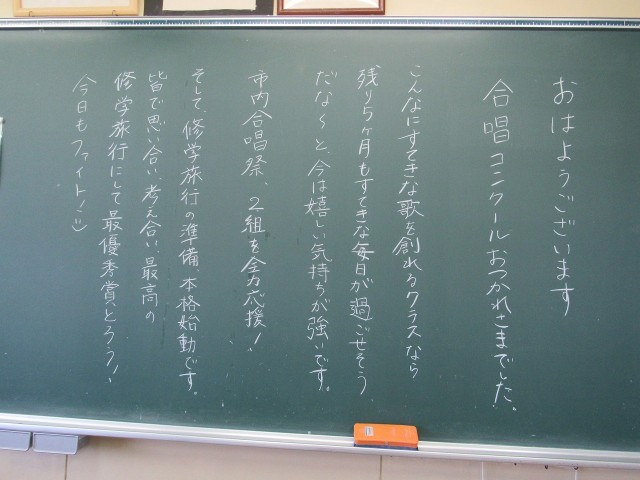 おはようございます
合唱コンクールおつかれさまでした。
こんなにすてきな歌を創れるクラスなら
残り5ヶ月もすてきな毎日が過ごせそう
だな〜と、今は嬉しい気持ちが強いです。
市内合唱祭、2組を全力応援!
そして、修学旅行の準備、本格始動です。
皆で思い合い、考え合い、最高の
修学旅行にして最優秀賞、とろう!
今日もファイト!:)